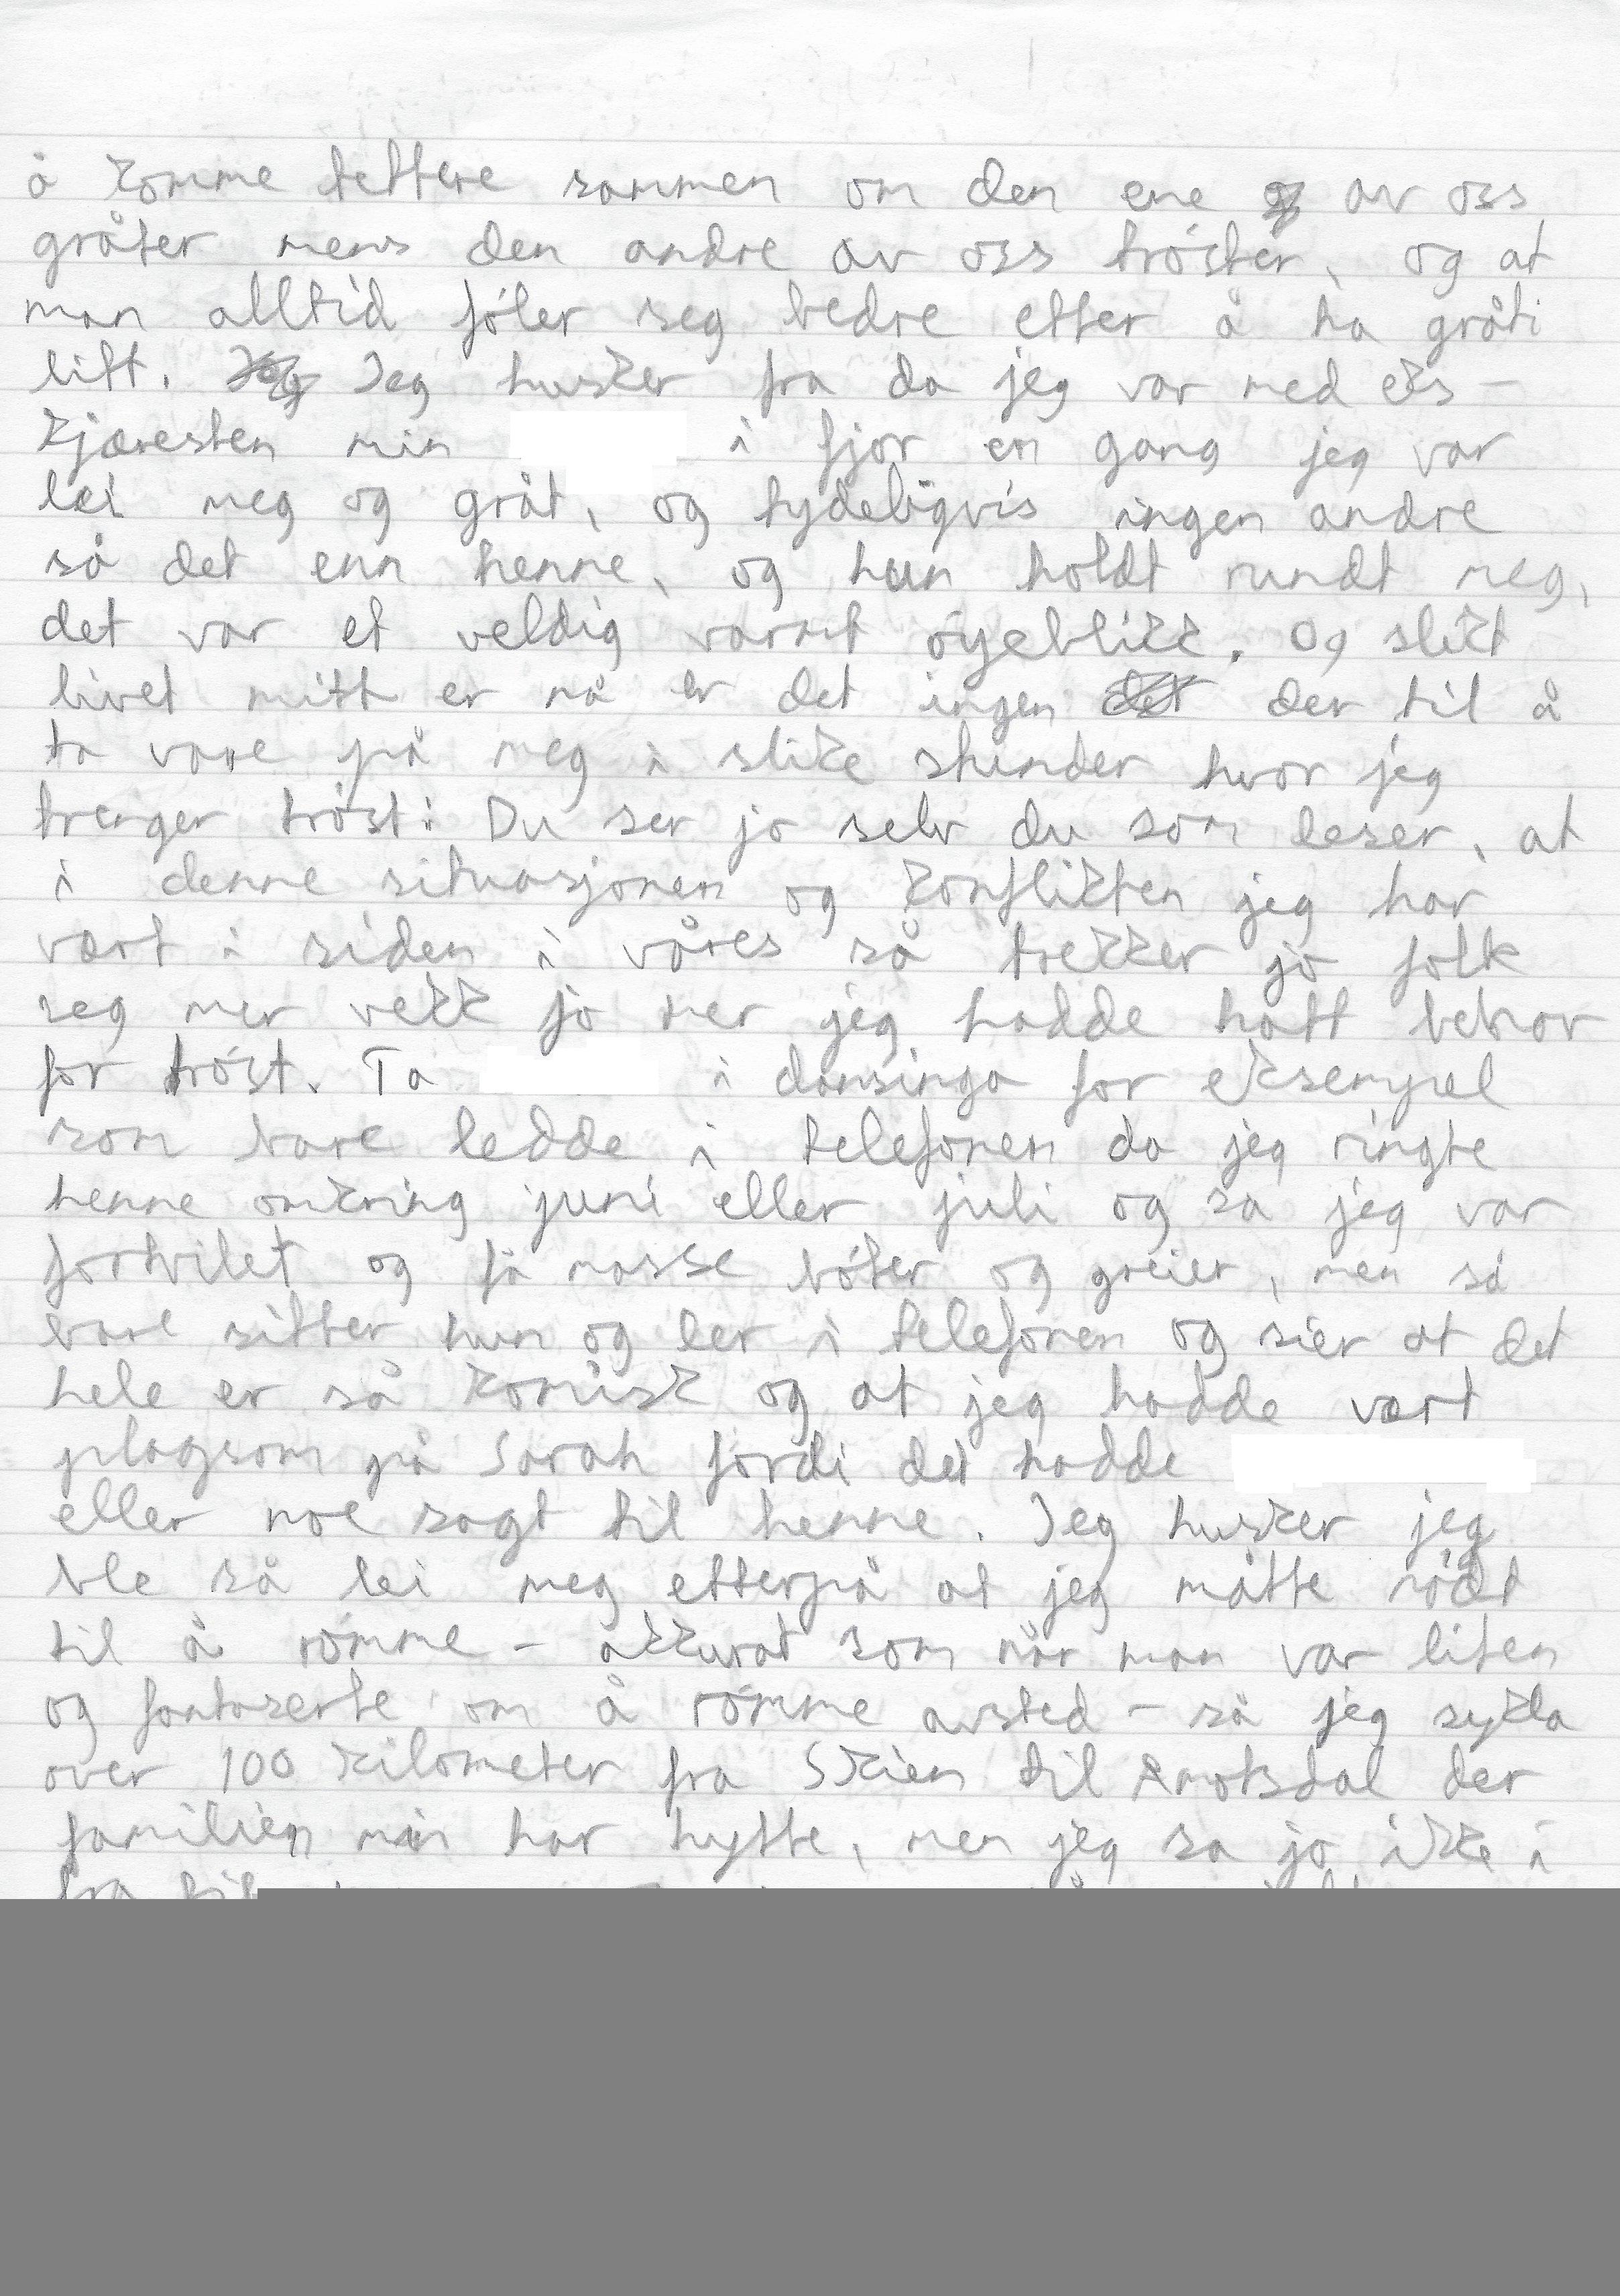 å komme tettere sammen om den ene av oss
gråter mens den andre av oss trøster, og at
man alltid føler seg bedre etter å ha gråti
litt. Jeg husker fra da jeg var med eks-
kjæresten min i fjor en gang jeg var
lei meg og gråt, og tydeligvis ingen andre
så det enn henne, og hun holdt rundt meg,
det var et veldig varmt øyeblikk. Og slikt
livet mitt er nå er det ingen der til å
ta vare på meg i slike stunder hvor jeg
trenger trøst: Du ser jo selv du som leser, at
i denne situasjonen og konflikten jeg har
vært i siden i våres så trekker jo folk
seg mer vekk jo mer jeg hadde hatt behov
for trøst. Ta i dansinga for eksempel
som bare ledde i telefonen da jeg ringte
henne omkring juni eller juli og sa jeg var
fortvilet og få masse bøter og greier, men så
bare sitter hun og ler i telefonen og sier at det
hele er så komisk og at jeg hadde vært
plagsom på Sarah fordi det hadde
eller noe sagt til henne. Jeg husker jeg
ble så lei meg etterpå at jeg måtte nødt
til å rømme - akkurat som når man var liten
og fantaserte om å rømme avsted - så jeg sykla
over 100 kilometer fra Skien til Åmotsdal der
familien min har hytte, men jeg sa jo ikke i
fra til